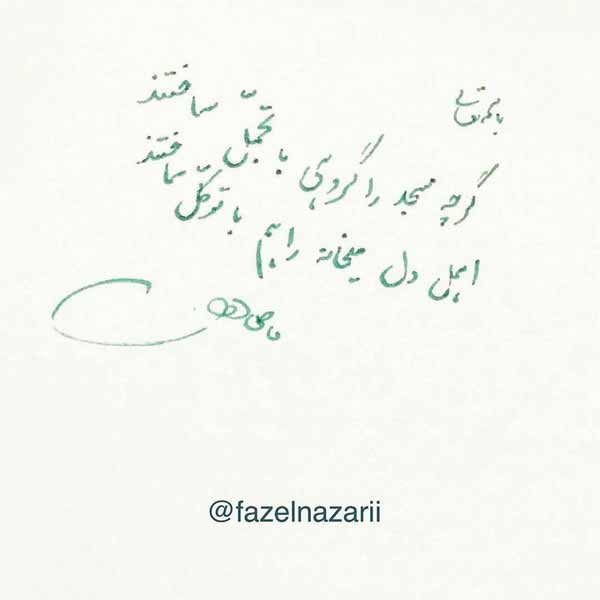 باسمه تعالی
گرچه مسجد را گروهی با تجمّل ساختند
اهل دل میخانه را هم با توکّل ساختند
@fazelnazarii